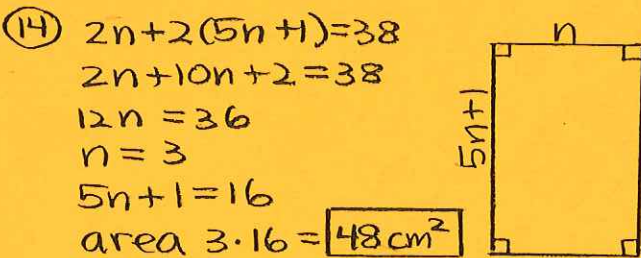 14 2n+2(5n+1)=38
2n+10n+2=38
12n=36
n=3
5n+1=16
area 3·16=48cm²
n
5n+1